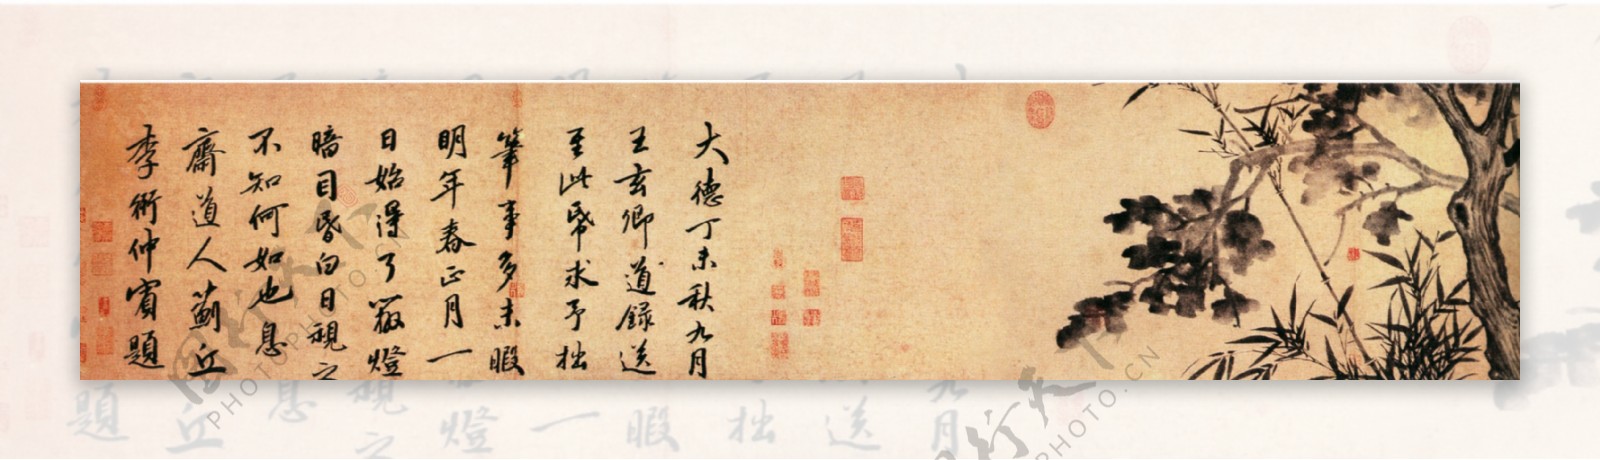 大德丁未秋九月
王玄卿道錄送
至此帋求予拙
筆事多未暇
明年春正月一
日始得了辦燈
暗目昏白日視之
不知何如也息
齋道人薊丘
李衎仲賓題
图行天下
PHOTO.CN
图行天下
PHOTO.CN